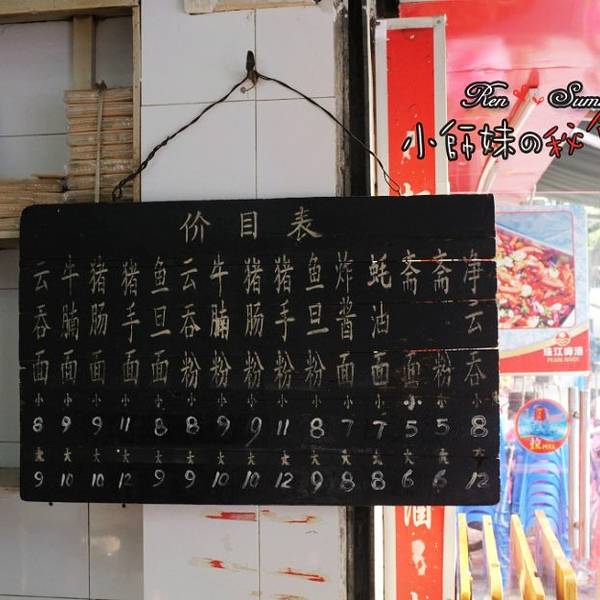 价目表
云吞面 小 8 大 9
牛腩面 小 9 大 10
猪肠面 小 9 大 10
猪手面 小 11 大 12
鱼旦面 小 8 大 9
云吞粉 小 8 大 9
牛腩粉 小 9 大 10
猪肠粉 小 9 大 10
猪手粉 小 11 大 12
鱼旦粉 小 8 大 9
炸酱面 小 7 大 8
蚝油面 小 7 大 8
斋面 小 5 大 6
斋粉 小 5 大 6
净云吞 小 8 大 12
Ren Sum
小师妹の秘
珠江啤酒
PEARL RIVER